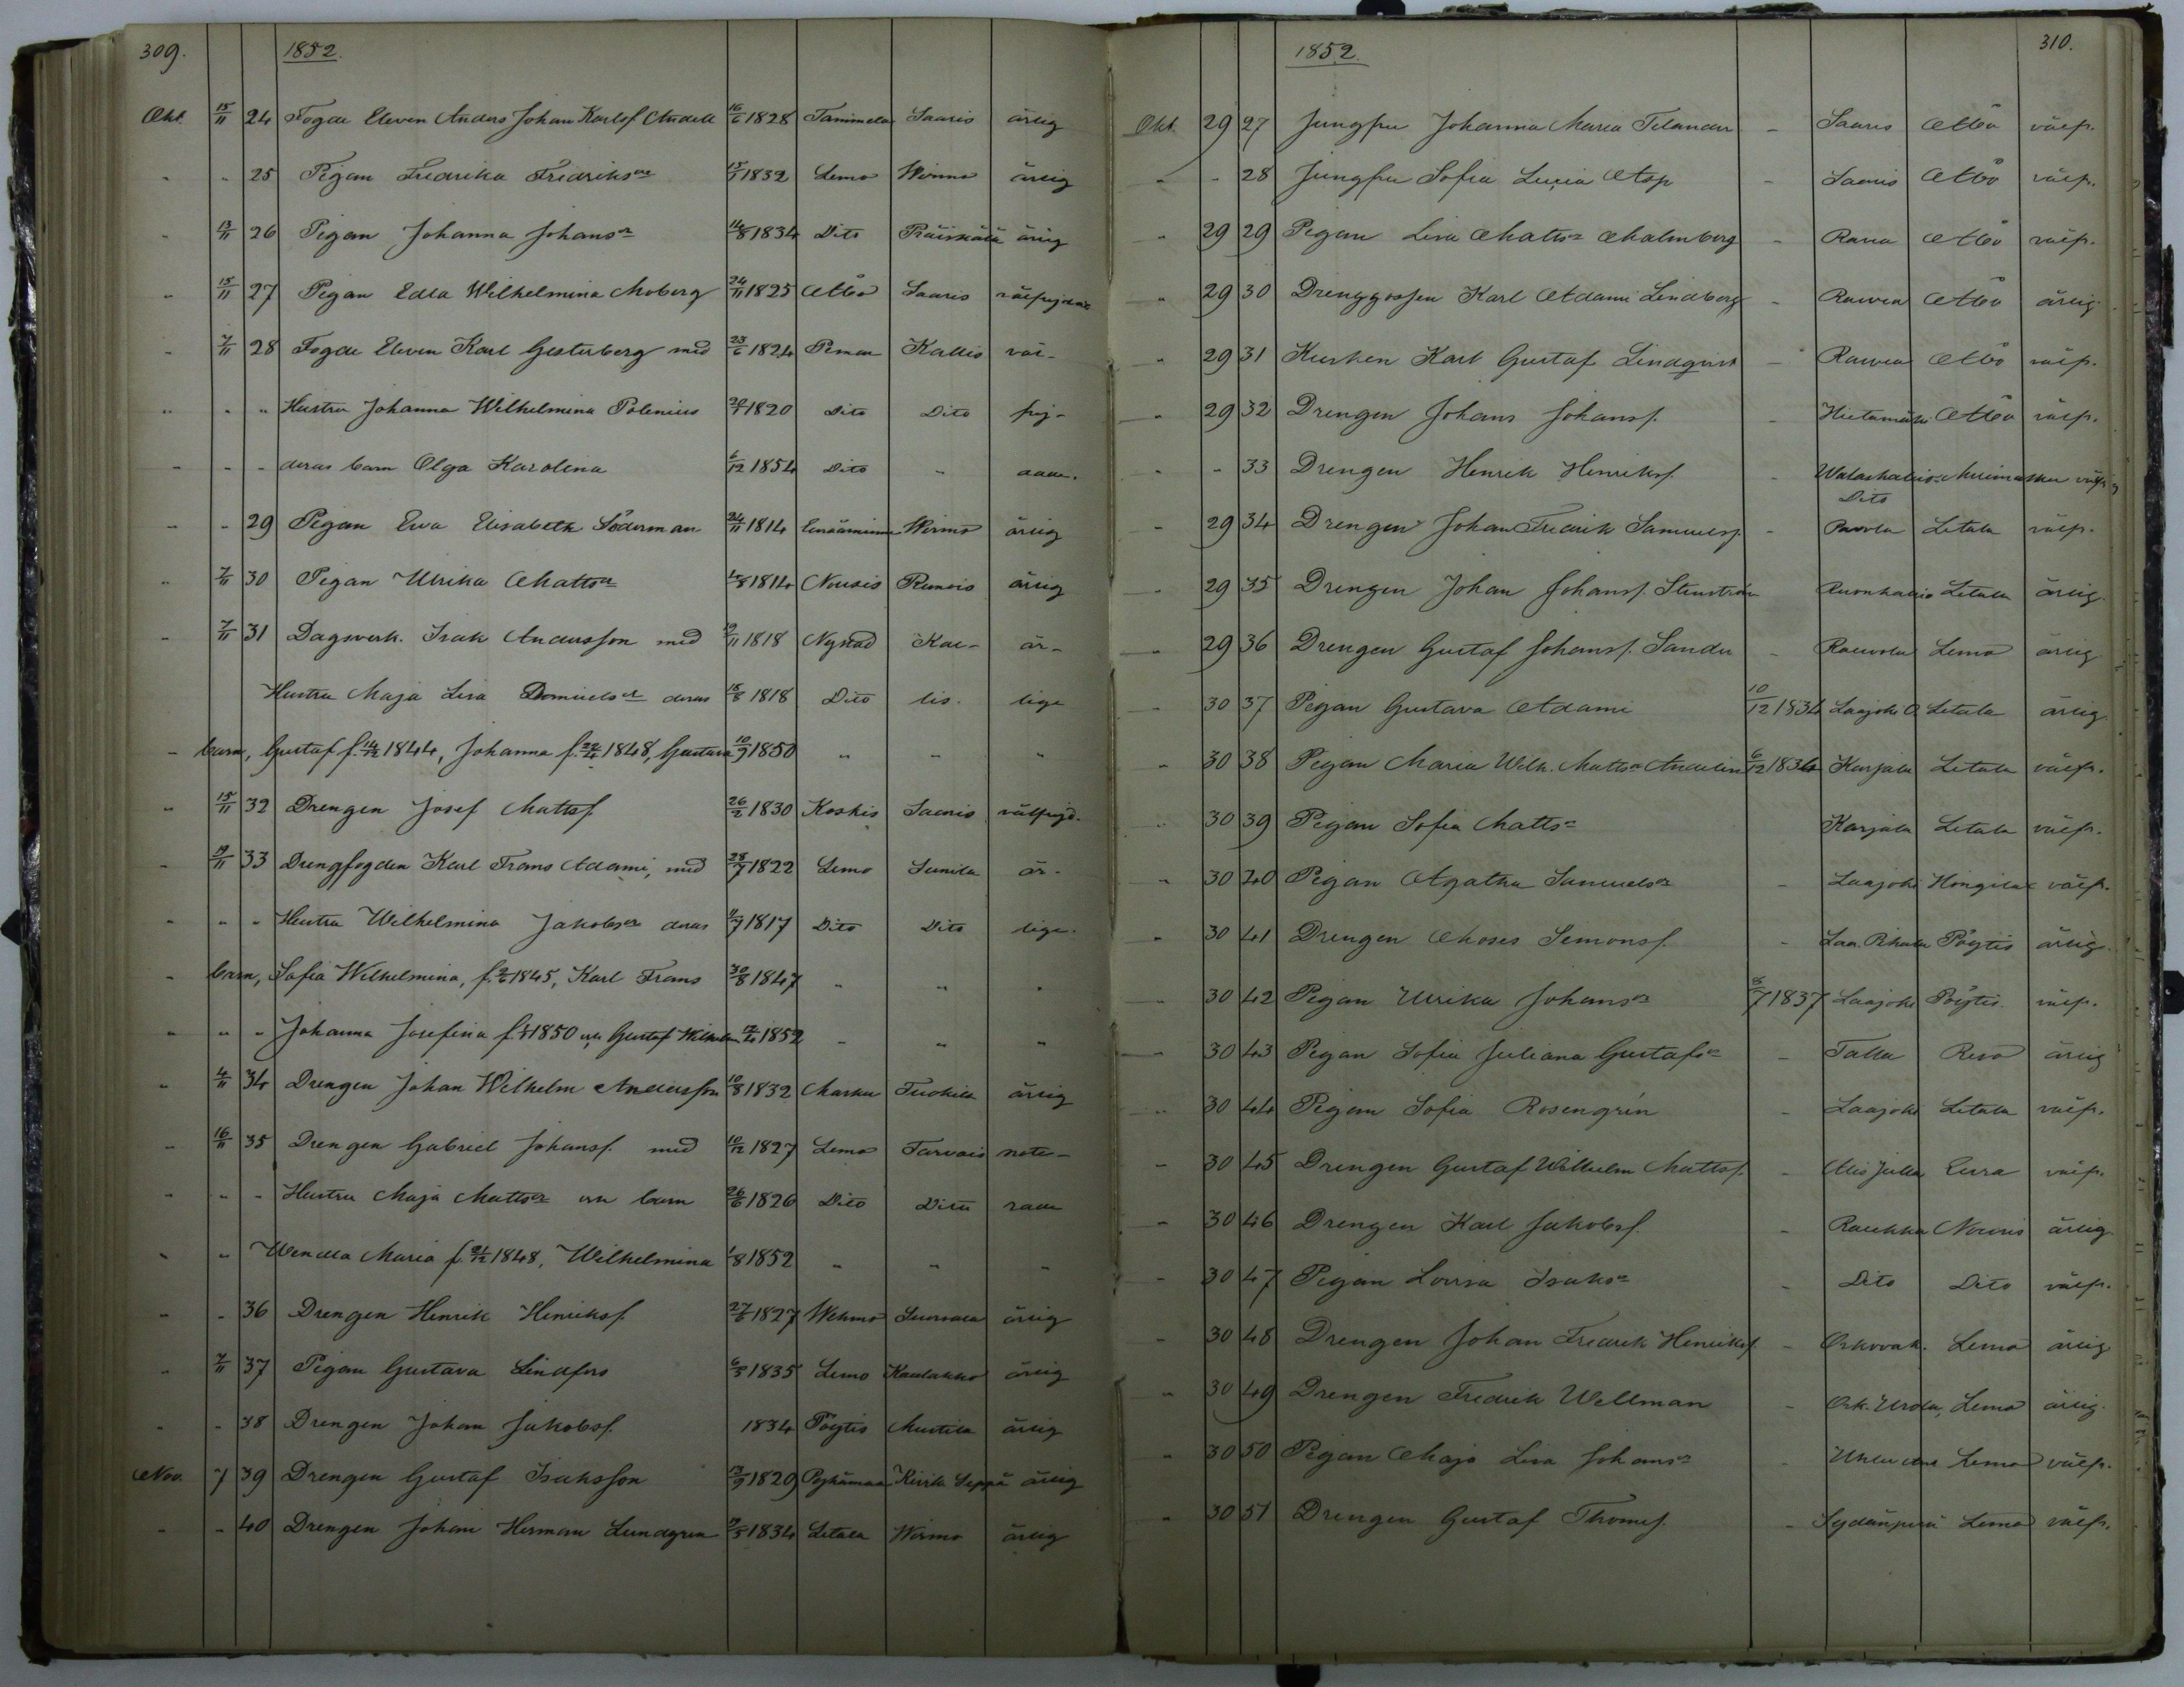 309.
1852.
Okt. 15/11 24 Fogde Eleven Anders Johan Karlsf. Andell 16/6 1828 Tammela Saaris ärlig
" " 25 Pigan Fredrika Fredriksdr 15/1 1832 Lemo Wirmo ärlig
" 13/11 26 Pigan Johanna Johansdr 14/8 1834 Dito ärlig
" 15/11 27 Pigan Edla Wilhelmina Moberg 24/11 1825 Åbo Saaris välfrejdad
" 7/11 28 Fogde Eleven Karl Gesterberg med 23/6 1824 Pemar Kallis väl-
" " " Hustru Johanna Wilhelmina Polenius 1820 Dito Dito frej-
" " " deras barn Olga Karolina 6/12 1854 Dito " dade.
" " 29 Pigan Eva Elisabeth Söderman 24/11 1814 Wirmo ärlig
" 7/11 30 Pigan Ulrika Mattsdr 1814 Nousis Remois ärlig
" 7/11 31 Dagsverk. Isak Andersson med 1818 Nystad Kal- är-
Hustru Maja Lisa deras 18/8 1818 Dito lis. lige
" barn, Gustaf f. 14/12 1844, Johanna f. 22/4 1848, Gustava 10/9 1850 " " "
" 15/11 32 Drengen Josef Mattsf. 26/2 1830 Koskis Saaris välfrejd.
" 19/11 33 Drengfogden Karl Frans Adami, med 28/7 1822 Lemo Sunila är-
" " " Hustru Wilhelmina Jakobsdr deras 1817 Dito Dito lige.
" barn, Sofia Wilhelmina, f. 1845, Karl Frans 30/8 1847 " " "
" " " Johanna Josefina f. 1850 Gustaf Wilhelm 1852 " " "
" 4/11 34 Drengen Johan Wilhelm Andersson 10/8 1832 Masku Tuokila ärlig
" 16/11 35 Drengen Gabriel Johansf. med 10/12 1827 Lemo Tarvais note-
" " " Hustru Maja Mattsdr barn 26/6 1826 Dito Dito rade
" " Wendla Maria f. 21/12 1848, Wilhelmina 1/8 1852 " " "
" " 36 Drengen Henrik Henriksf. 27/6 1827 Wehmo ärlig
" 7/11 37 Pigan Gustava Lindfors 1835 Lemo Kaulakko ärlig
" " 38 Drengen Johan Jakobsf. 1834 Pöytis Mustila ärlig
Nov. 7 39 Drengen Gustaf Isaksson 13/9 1829 Seppä ärlig
" " 40 Drengen Johan Herman Lundgren 1834 Letala Wirmo ärlig
1852.
310.
Okt. 29 27 Jungfru Johanna Maria Telander - Saaris Åbo välfr.
" " 28 Jungfru Sofia Lucia - Saaris Åbo välfr.
" 29 29 Pigan Lisa Mattsdr Malmberg - Åbo välfr.
" 29 30 Drenggossen Karl Adami Lindberg - Åbo ärlig
" 29 31 Kusken Karl Gustaf Lindqvist - Åbo välfr.
" 29 32 Drengen Johans Johansf. - Hietamäki Åbo välfr.
" " 33 Drengen Henrik Henriksf. - välfr.
Dito
" 29 34 Drengen Johan Fredrik Samuelsf. - Letala välfr.
" 29 35 Drengen Johan Johansf. Stenström Letala ärlig
" 29 36 Drengen Gustaf Johansf. Sander - Lemo ärlig
" 30 37 Pigan Gustava Adami 10/12 1834 Laajoki Letala ärlig
" 30 38 Pigan Maria Wilh. Mattsdr Andelin 6/12 1834 Karjala Letala välfr.
" 30 39 Pigan Sofia Mattsdr Karjala Letala välfr.
" 30 40 Pigan Agatha Samuelsdr - Laajoki välfr.
" 30 41 Drengen Moses Simonsf. - Pöytis ärlig
" 30 42 Pigan Ulrika Johansdr 1837 Laajoki Pöytis välfr.
" 30 43 Pigan Sofia Juliana Gustafsdr - Reso ärlig
" 30 44 Pigan Sofia Rosengrén - Laajoki Letala välfr.
" 30 45 Drengen Gustaf Wilhelm Mattsf. - Eura välfr.
" 30 46 Drengen Karl Jakobsf. - Nousis ärlig
" 30 47 Pigan Lovisa Isaksdr - Dito Dito välfr.
" 30 48 Drengen Johan Fredrik Henriksf. - Lemo ärlig
" 30 49 Drengen Fredrik Wellman - Lemo ärlig
" 30 50 Pigan Maja Lisa Johansdr - Lemo välfr.
" 30 51 Drengen Gustaf Thomsf. - Sydänperä Lemo välfr.